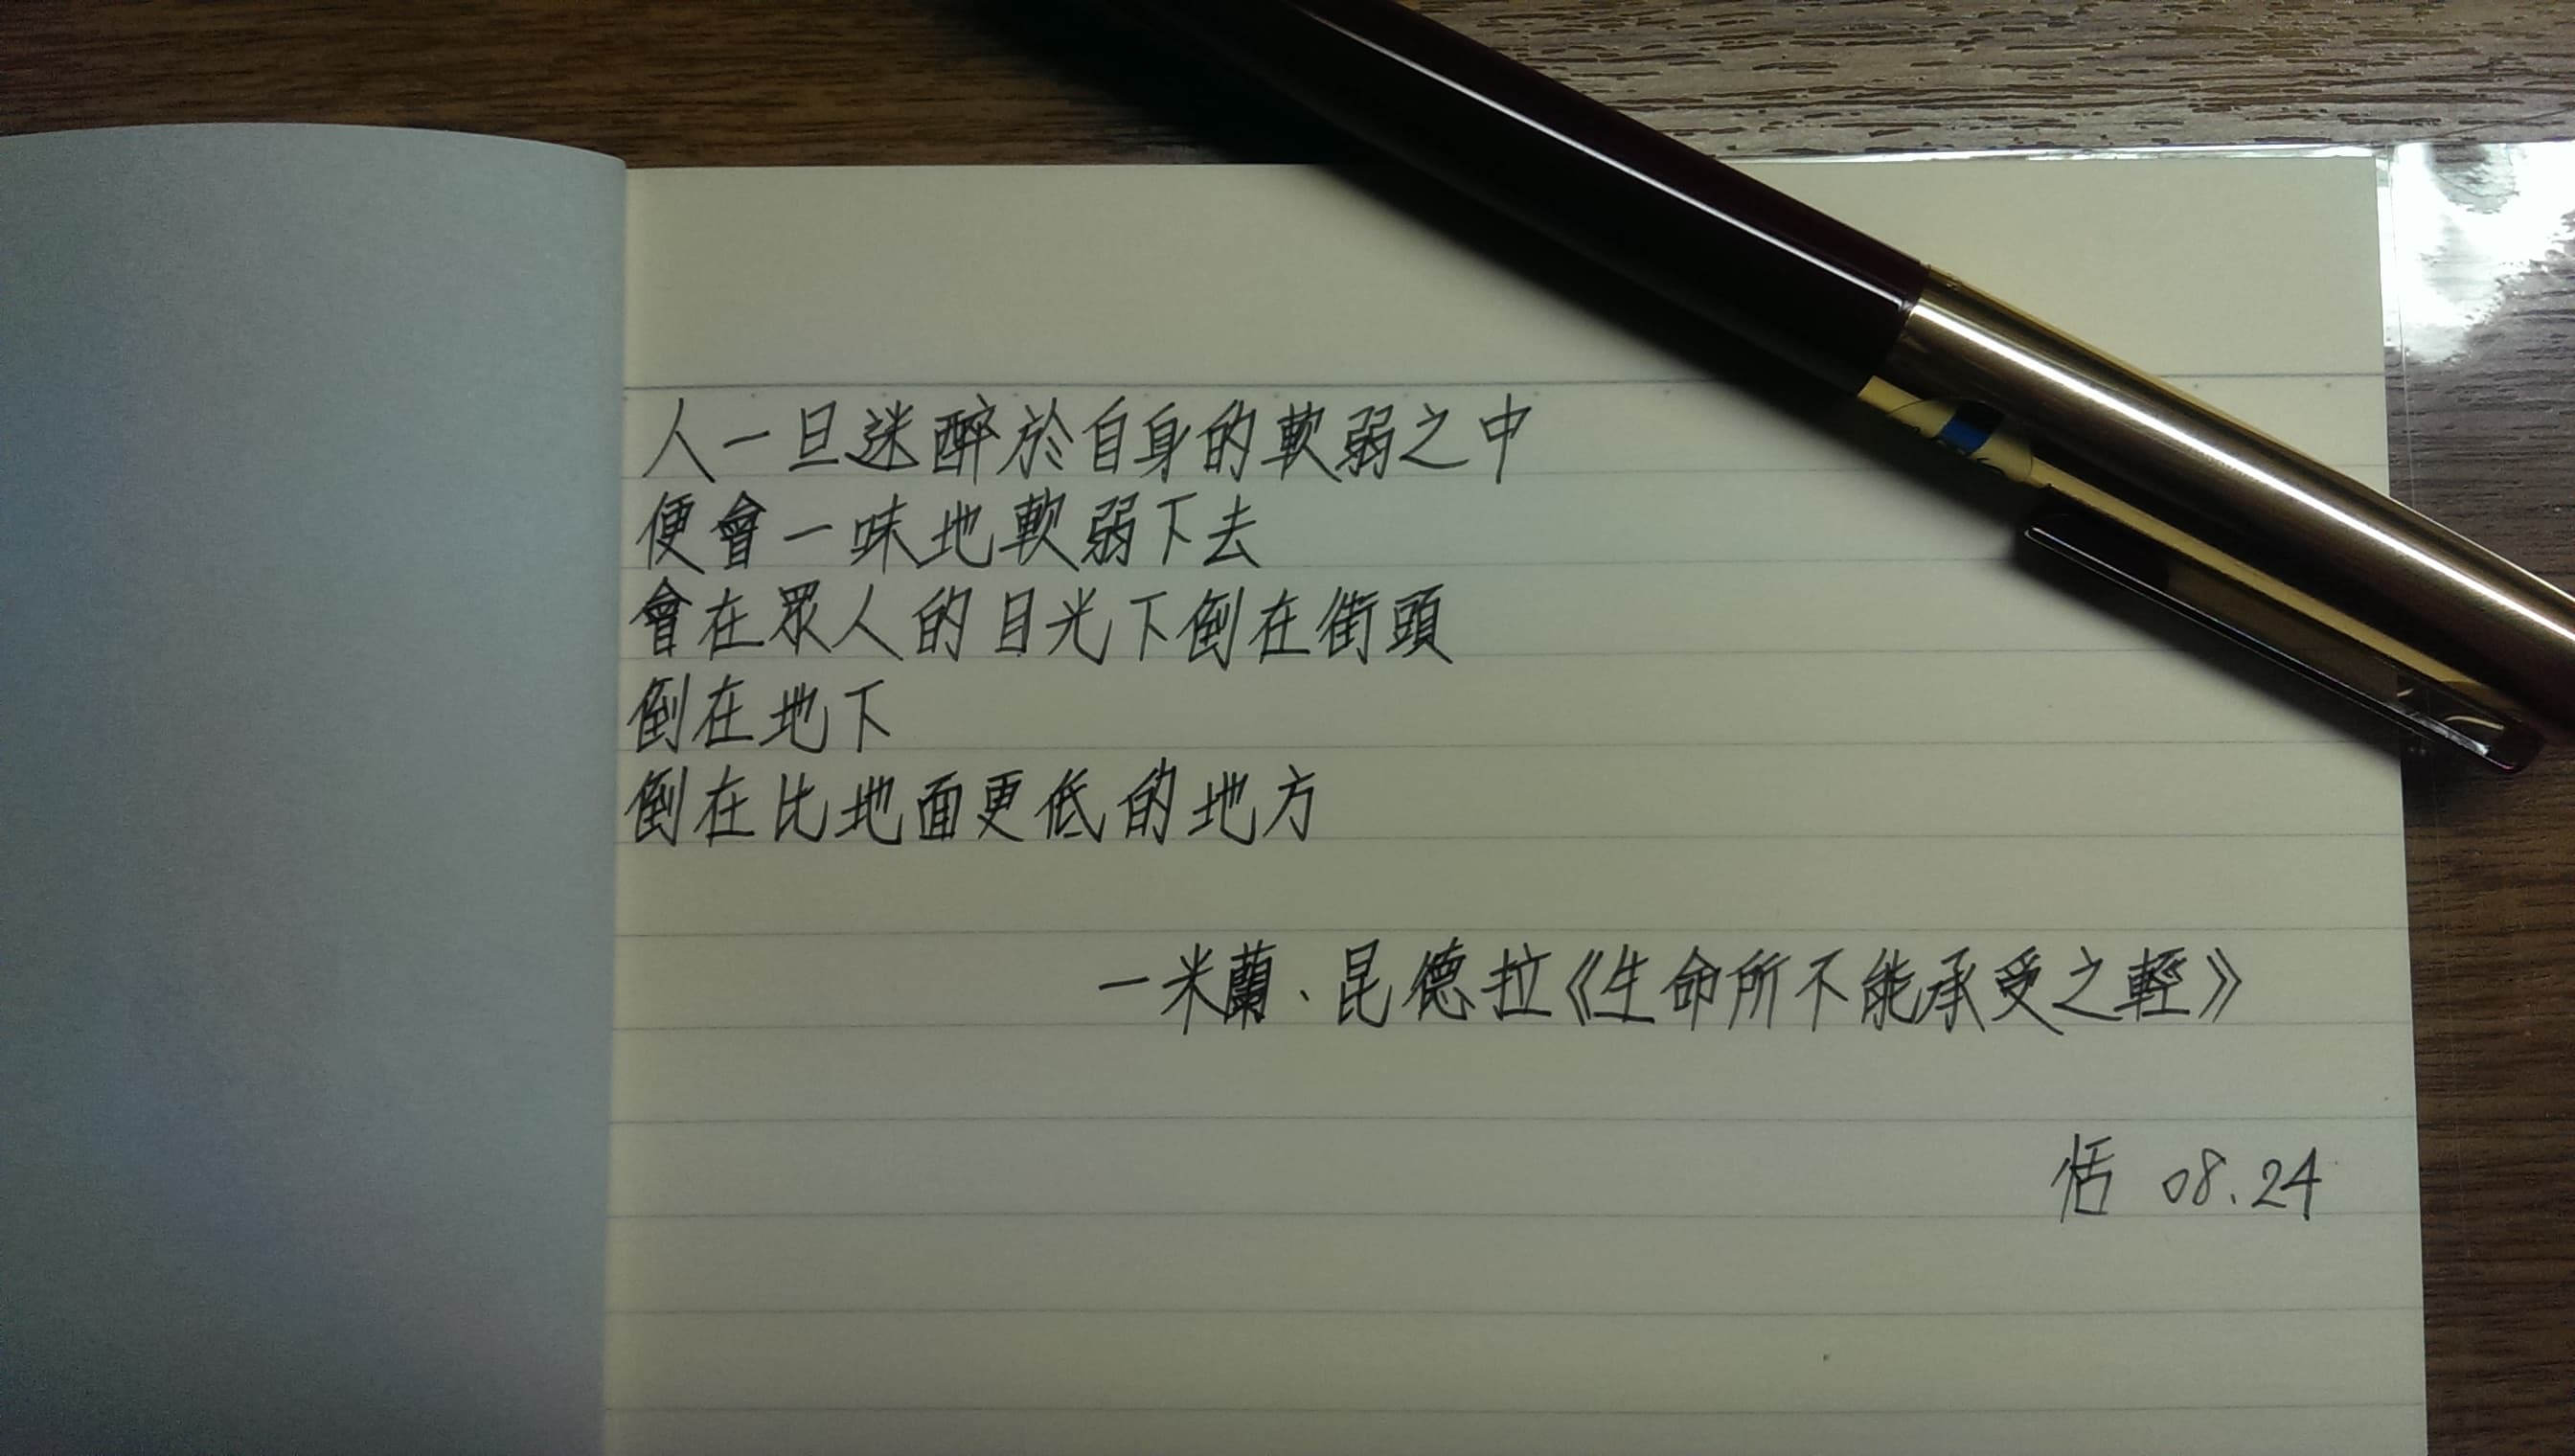 人一旦迷醉於自身的軟弱之中
便會一味地軟弱下去
會在眾人的目光下倒在街頭
倒在地下
倒在比地面更低的地方
—米蘭、昆德拉《生命所不能承受之輕》
恬 08.24